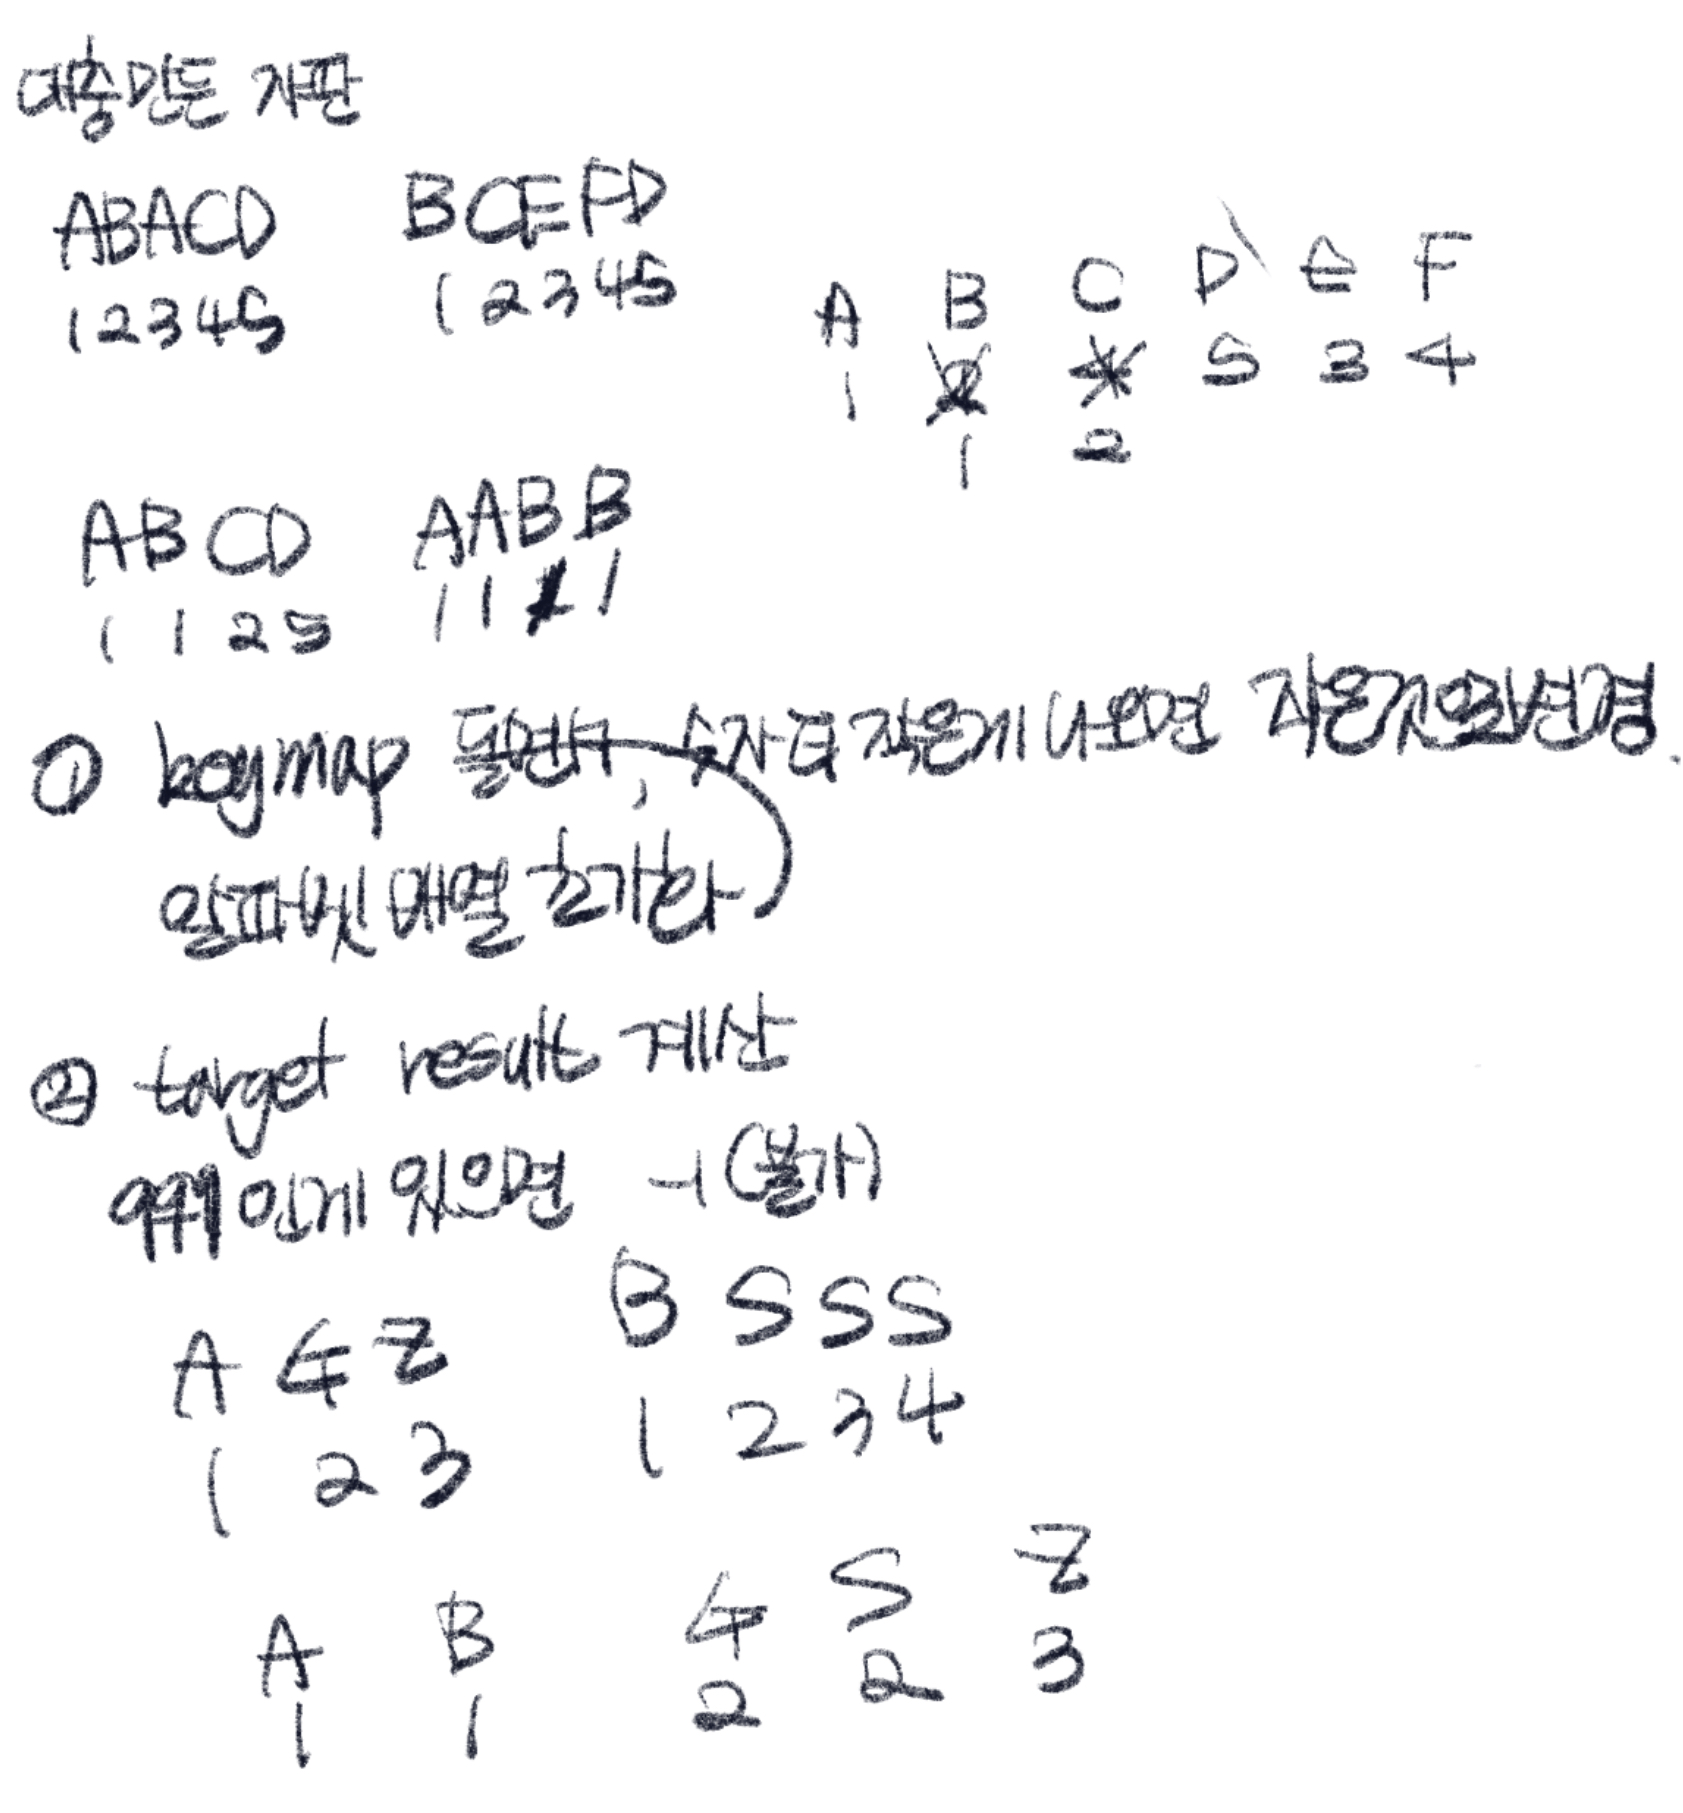 대충만든 자판
ABACD BCEFD
12345 12345
A B C D E F
1 2 4 5 3 4
1 2
ABCD AABB
1125 1111
① keymap 돌면서, 숫자 더 작은게 나오면 작은것으로 변경.
알파벳 배열 초기화
② target result 계산
999인게 있으면 -1 (불가)
A G Z B S S S
1 2 3 1 2 3 4
A B G S Z
1 1 2 2 3